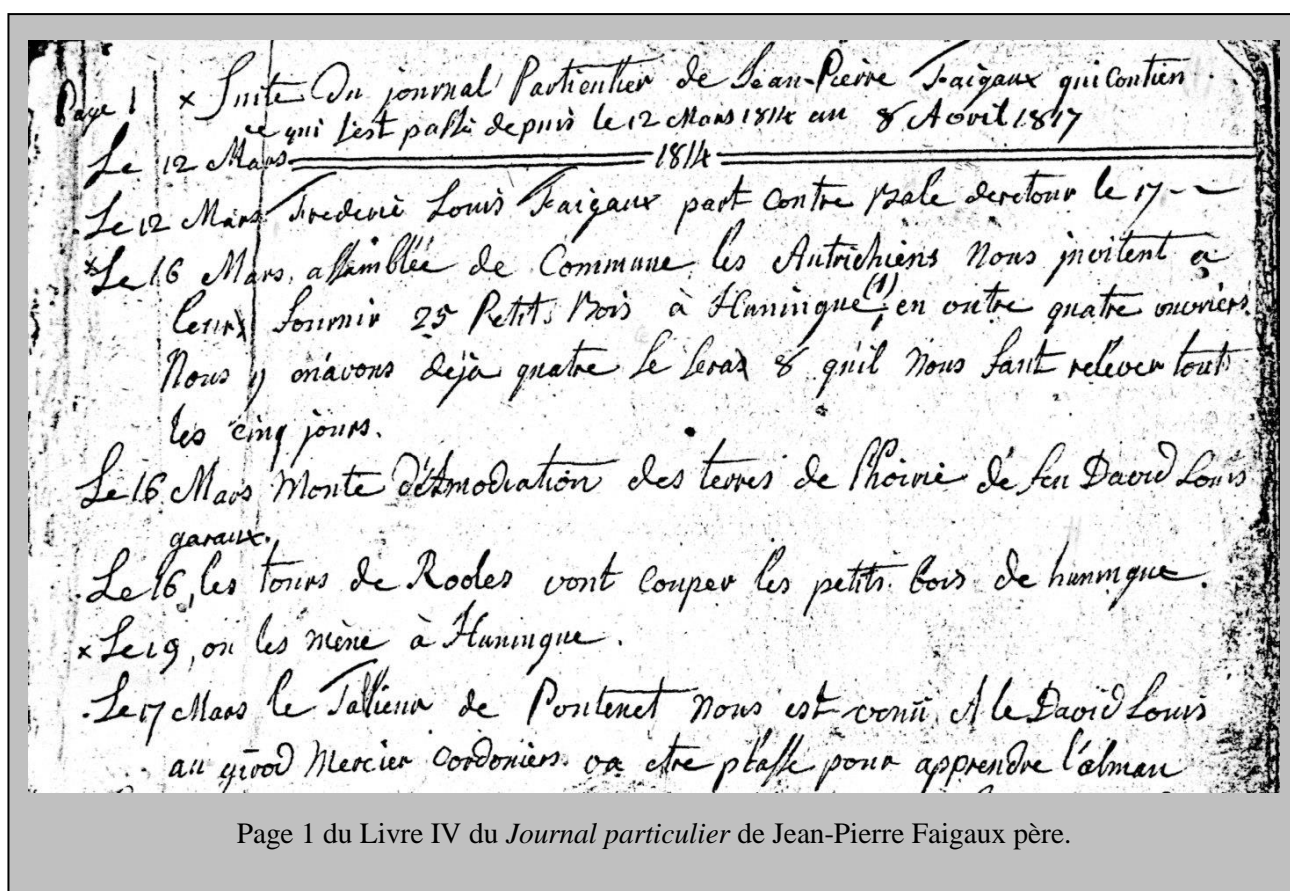 Page 1 × Suite Du journal Particulier de Jean-Pierre Faigaux qui Contien
ce qui s'est passé depuis le 12 Mars 1814 au 8 Avril 1817
Le 12 Mars 1814
Le 12 Mars Frederic Louis Faigaux part Contre Bale deretour le 17
× Le 16 Mars, assemblée de Commune, les Autrichiens Nous invitent a
leurs fournir 25 Petits Bois à Huningue (1), en outre quatre ouvriers.
Nous y en avons déjà quatre se sera 8 qu'il Nous faut relever tout
les cinq jours.
Le 16 Mars Monte d'Amodiation des terres de l'hoirie de feu David Louis
garaux.
Le 16, les tours de Rooles vont Couper les petits bois de huningue.
× Le 19, on les mène à Huningue.
Le 17 Mars le Tallieur de Pontenet Nous est venu, et le David Louis
au girod Mercier Cordoniers va etre plasse pour apprendre l'alman
Page 1 du Livre IV du Journal particulier de Jean-Pierre Faigaux père.